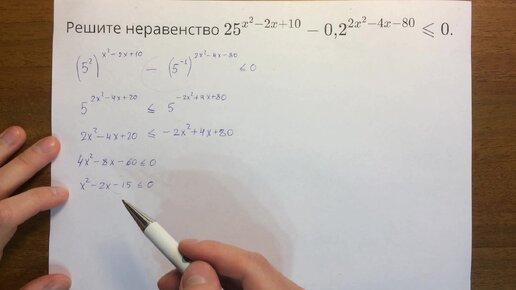 Решите неравенство 25^{x²−2x+10} − 0,2^{2x²−4x−80} ⩽ 0.
(5²)^{x²−2x+10} − (5^{−1})^{2x²−4x−80} ≤ 0
5^{2x²−4x+20} ≤ 5^{−2x²+4x+80}
2x²−4x+20 ≤ −2x²+4x+80
4x²−8x−60 ≤ 0
x²−2x−15 ≤ 0